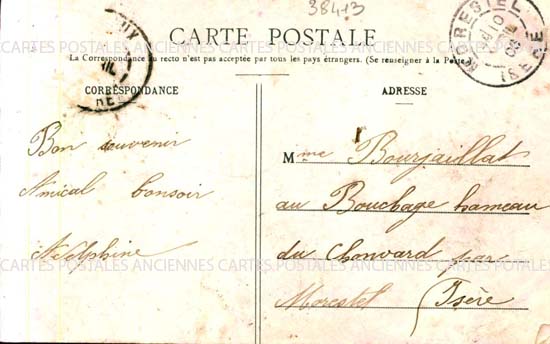 38413
CARTE POSTALE
La Correspondance au recto n'est pas acceptée par tous les pays étrangers. (Se renseigner à la Poste)
CORRESPONDANCE
ADRESSE
Bon souvenir
Amical bonsoir
Delphine
Mme Bourjaillat
au Bouchage hameau
du Chonvard par
Morestel (Isère
ISERE
CARTES POSTALES ANCIENNES CARTES POSTALES ANCIENNES CARTES POSTALES
CARTES POSTALES ANCIENNES CARTES POSTALES ANCIENNES CARTES POTALES